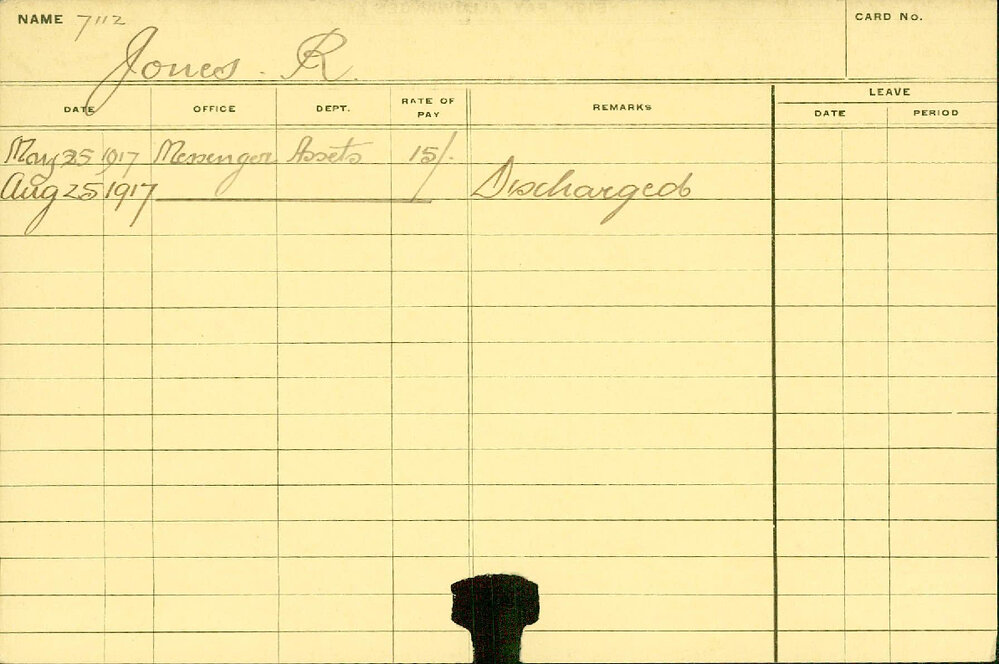 NAME 7112 CARD No.
Jones. R.
DATE OFFICE DEPT. RATE OF PAY REMARKS LEAVE
DATE PERIOD
May 25 1917 Messenger Assets 15/-
Aug 25 1917 Discharged